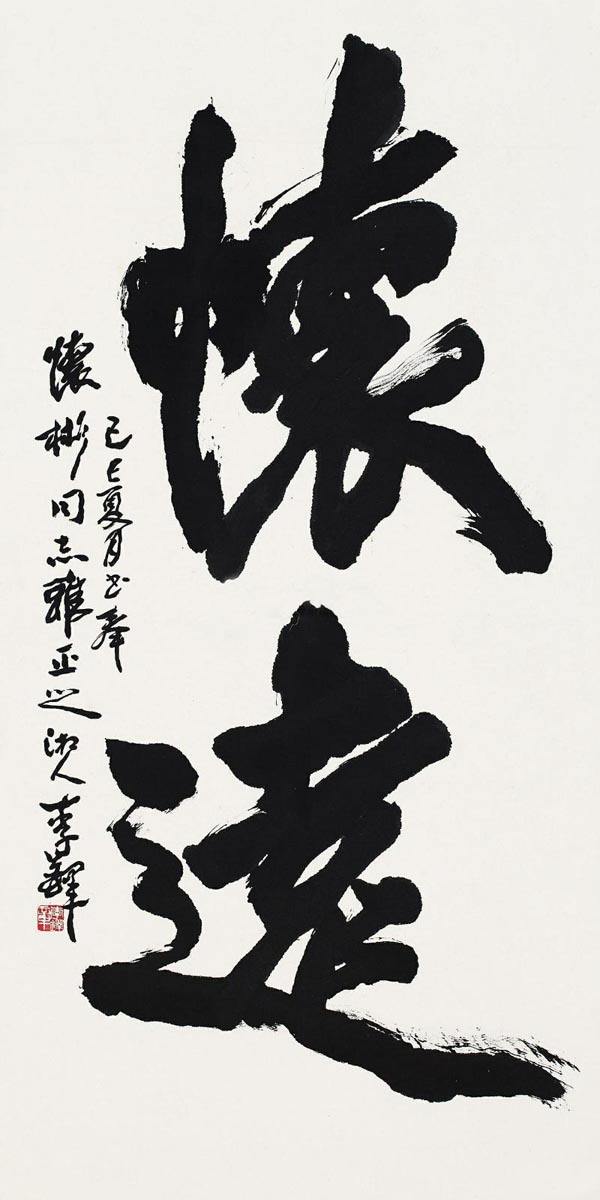 懷遠
己巳夏月书奉
懷彬同志雅正之湘人李鐸